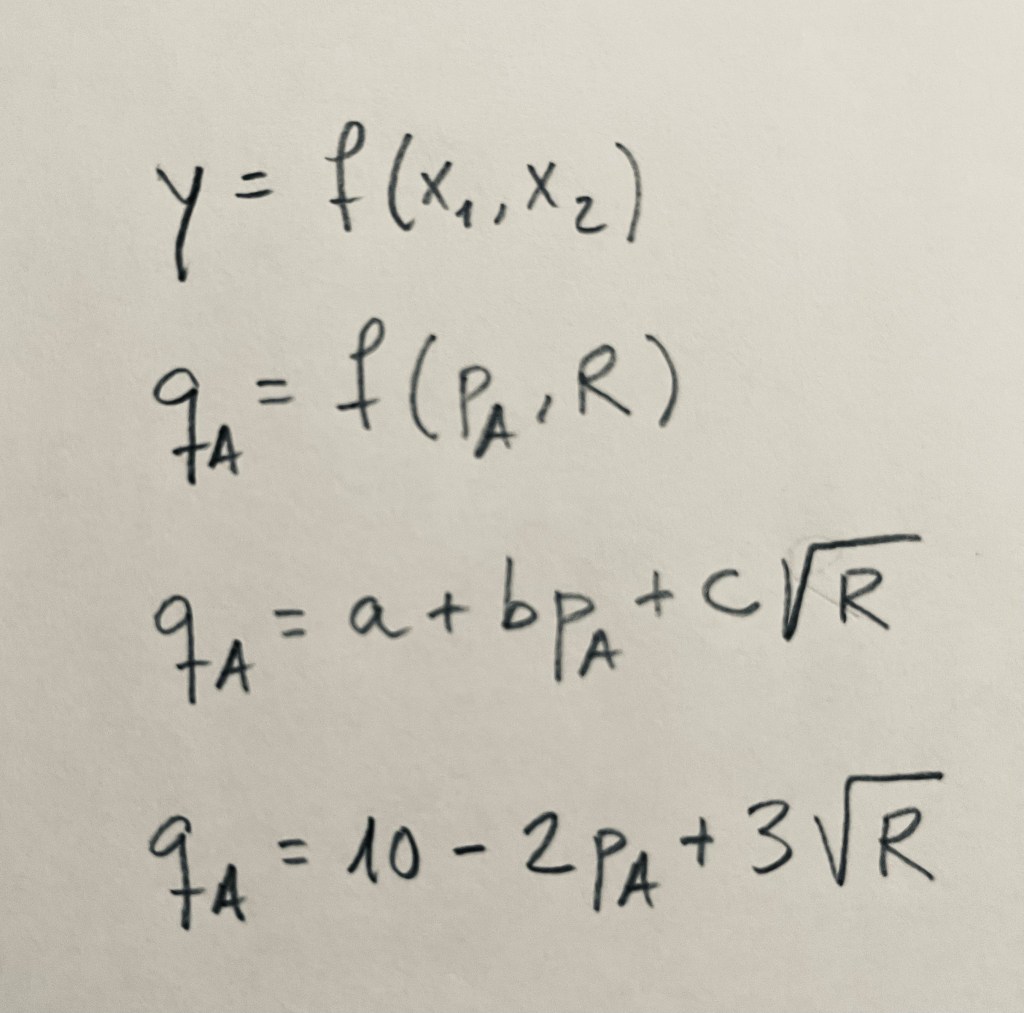 y = f(x₁, x₂)
q_A = f(p_A, R)
q_A = a + bp_A + c√R
q_A = 10 - 2p_A + 3√R